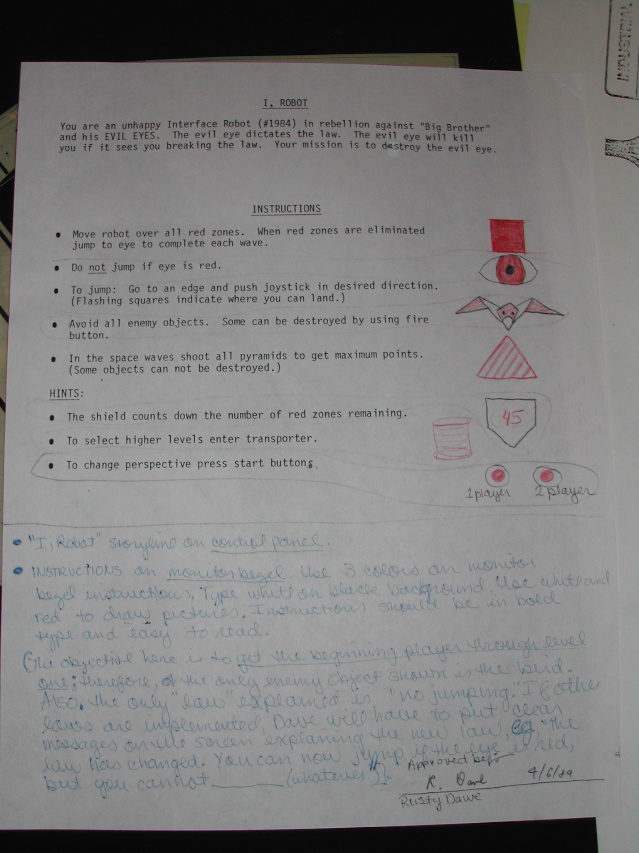 INDUSTRIAL
I, ROBOT
You are an unhappy Interface Robot (#1984) in rebellion against "Big Brother"
and his EVIL EYES. The evil eye dictates the law. The evil eye will kill
you if it sees you breaking the law. Your mission is to destroy the evil eye.
INSTRUCTIONS
• Move robot over all red zones. When red zones are eliminated
jump to eye to complete each wave.
• Do not jump if eye is red.
• To jump: Go to an edge and push joystick in desired direction.
(Flashing squares indicate where you can land.)
• Avoid all enemy objects. Some can be destroyed by using fire
button.
• In the space waves shoot all pyramids to get maximum points.
(Some objects can not be destroyed.)
HINTS:
• The shield counts down the number of red zones remaining.
45
• To select higher levels enter transporter.
• To change perspective press start buttons.
1 player 2 player
• "I, Robot" storyline on control panel.
• INSTRUCTIONS on monitor bezel. Use 3 colors on monitor
bezel instructions. Type white on black background. Use white and
red to draw pictures. Instructions should be in bold
type and easy to read.
(The objective here is to get the beginning player through level
one; therefore, the only enemy object shown is the bird.
Also, the only "law" explained is, "no jumping." If other
laws are implemented, Dave will have to put clear
messages on the screen explaining the new law, eg, "the
law has changed. You can now jump if the eye is red,
but you cannot ______ (whatever)".)
Approved by:
R. Dawe 4/6/84
Rusty Dawe